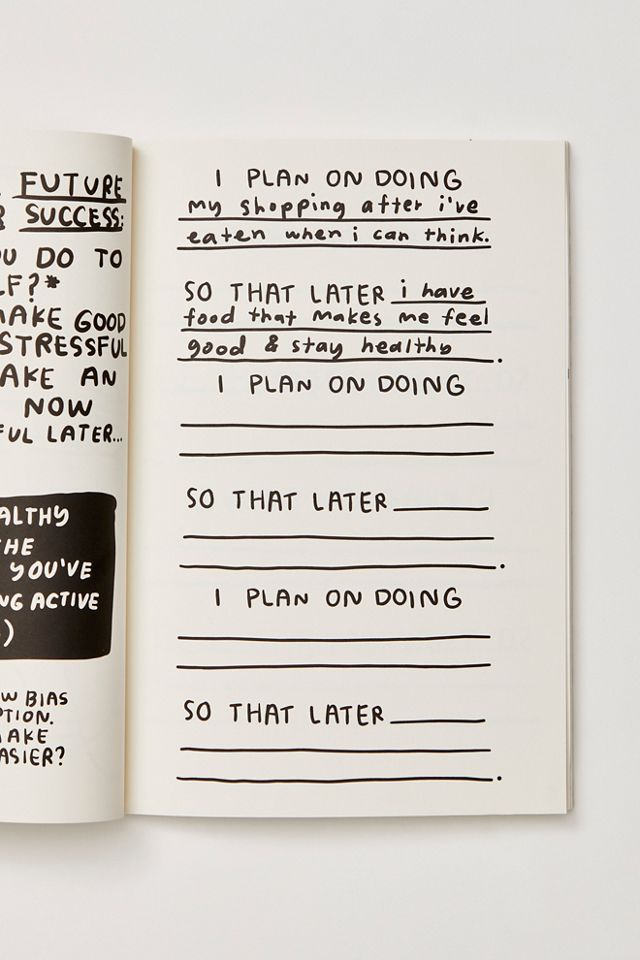 FUTURE
SUCCESS:
DO TO
MAKE GOOD
STRESSFUL
AN
NOW
LATER...
THE
YOU'VE
ACTIVE
)
BIAS
I PLAN ON DOING
my shopping after i've
eaten when i can think.
SO THAT LATER i have
food that makes me feel
good & stay healthy.
I PLAN ON DOING
SO THAT LATER
.
I PLAN ON DOING
SO THAT LATER
.